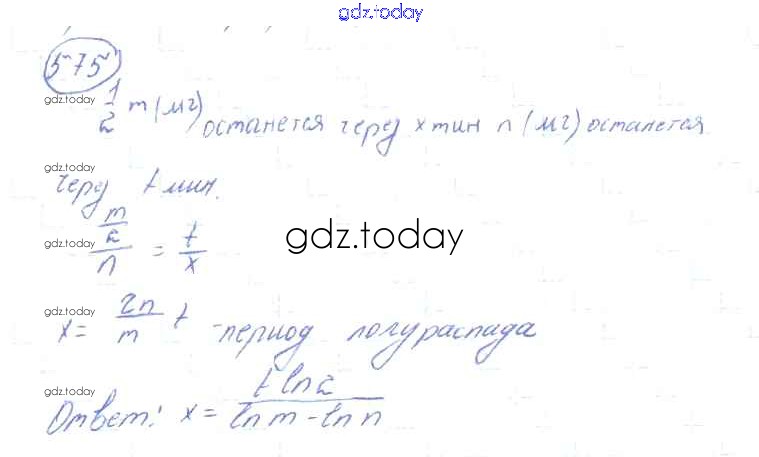 gdz.today
575
gdz.today
1/2 m (мг) останется через x мин n (мг) останется
gdz.today
через t мин.
gdz.today
(m/2)/n = t/x
gdz.today
gdz.today
x = 2n/m t - период полураспада
gdz.today
Ответ: x = t ln2 / (ln m - ln n)